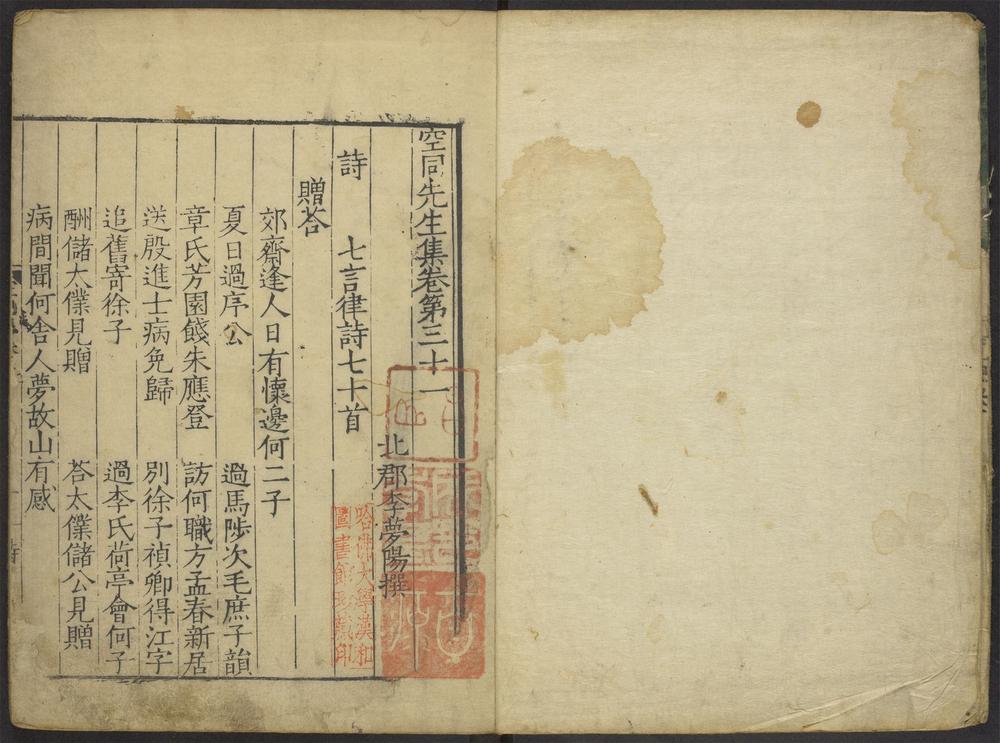 空同先生集卷第三十一
北郡李夢陽撰
詩　七言律詩七十首
贈荅
郊齋逢人日有懷邊何二子
夏日過序公　過馬陟次毛庶子韻
章氏芳園餞朱應登　訪何職方孟春新居
送殷進士病免歸　別徐子禎卿得江字
追舊寄徐子　過李氏荷亭會何子
酬儲太僕見贈　荅太僕儲公見贈
病間聞何舍人夢故山有感
哈佛大學漢和
圖書館珍藏印